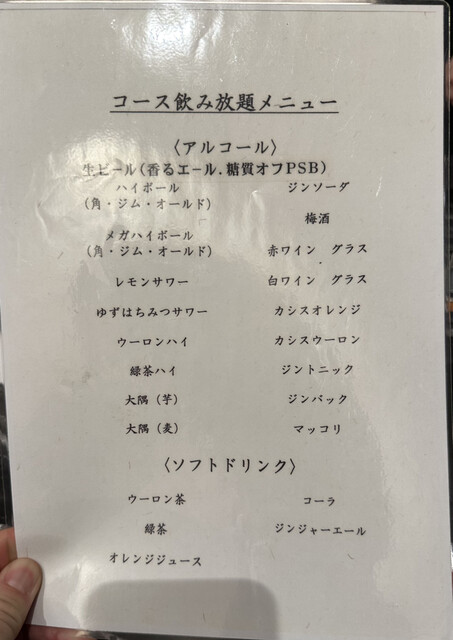 コース飲み放題メニュー
〈アルコール〉
生ビール(香るエール.糖質オフPSB)
ハイボール
(角・ジム・オールド)
ジンソーダ
梅酒
メガハイボール
(角・ジム・オールド)
赤ワイン グラス
レモンサワー
白ワイン グラス
ゆずはちみつサワー
カシスオレンジ
ウーロンハイ
カシスウーロン
緑茶ハイ
ジントニック
大隅(芋)
ジンバック
大隅(麦)
マッコリ
〈ソフトドリンク〉
ウーロン茶
コーラ
緑茶
ジンジャーエール
オレンジジュース